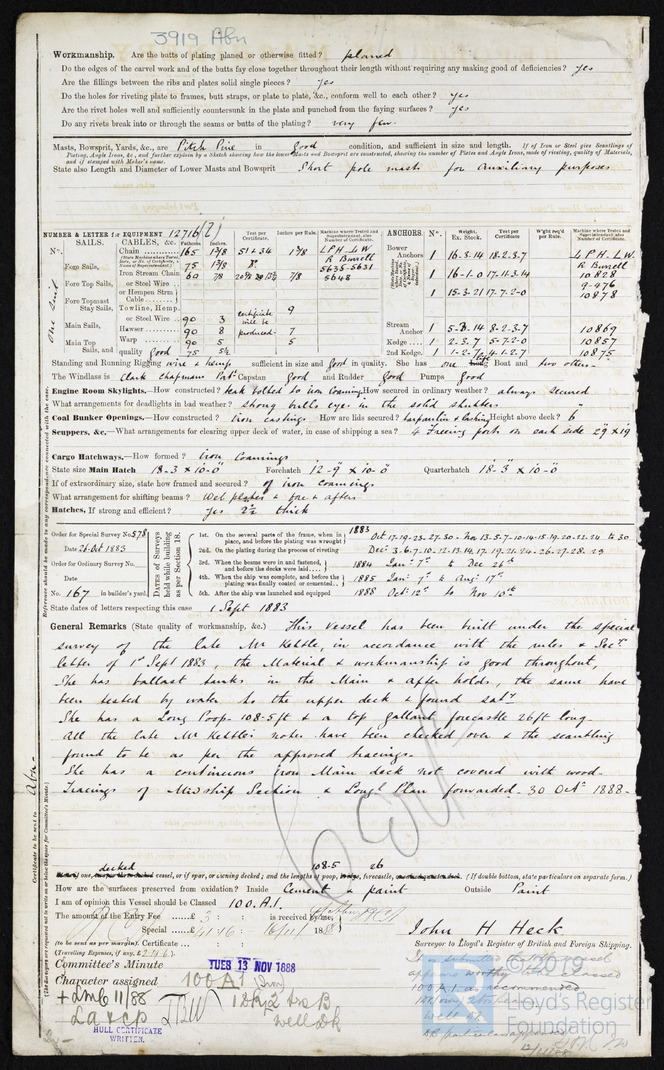 3919 Abn
Workmanship. Are the butts of plating planed or otherwise fitted? planed
Do the edges of the carvel work and of the butts fay close together throughout their length without requiring any making good of deficiencies? yes
Are the fillings between the ribs and plates solid single pieces? yes
Do the holes for riveting plate to frames, butt straps, or plate to plate, &c., conform well to each other? yes
Are the rivet holes well and sufficiently countersunk in the plate and punched from the faying surfaces? yes
Do any rivets break into or through the seams or butts of the plating? very few.
Masts, Bowsprit, Yards, &c., are Pitch Pine in good condition, and sufficient in size and length. If of Iron or Steel give Scantlings of
Plating, Angle Irons, &c., and further explain by a Sketch showing how the lower Masts and Bowsprit are constructed, showing the number of Plates and Angle Irons, mode of riveting, quality of Materials,
and if stamped with Maker's name.
State also Length and Diameter of Lower Masts and Bowsprit Short pole masts for auxiliary purposes
NUMBER & LETTER for EQUIPMENT 12716
N°. SAILS. CABLES, &c. Fathoms. Inches. Test per Certificate. Inches per Rule. Machine where Tested and Superintendent, also Number of Certificate. ANCHORS. N°. Weight. Ex. Stock. Test per Certificate W'ght req'd per Rule. Machine where Tested and Superintendent, also Number of Certificate.
Fore Sails, Chain 165 1 3/8 51 & 34 1 3/8 L P H. L W Bower Anchors 1 16.3.14 18.2.3.7 L P H. L W.
75 1 3/8 R Burrell R Burrell
5635-5631 1 16-1.0 17.11.3.14 10828
Iron Stream Chain 60 7/8 7/8 5648 9-476
Fore Top Sails, or Steel Wire 1 15-3.21 17.7.2-0 10878
or Hempen Strm Cable
Fore Topmast Stay Sails, Towline, Hemp. 9
or Steel Wire 90 3 certificate will be produced. Stream Anchor 1 8-2.3.7 10869
Main Sails, Hawser 90 8 7 Kedge 1 2-3.7 5-7.2-0 10857
Main Top Sails, and Warp 90 5 5 2nd Kedge 1 4-1.2.7 10875
quality good 75 5½
One Suit
Standing and Running Rigging wire & hemp sufficient in size and good in quality. She has one Life Boat and two others
The Windlass is Clark Chapman Pat. Capstan good and Rudder good Pumps good
Engine Room Skylights.—How constructed? teak bolted to iron Coaming How secured in ordinary weather? always secured
What arrangements for deadlights in bad weather? strong bulls eyes in the solid shutters
Coal Bunker Openings.—How constructed? iron castings How are lids secured? tarpaulin & lashing Height above deck? 6"
Scuppers, &c.—What arrangements for clearing upper deck of water, in case of shipping a sea? 4 Freeing ports on each side 29 x 19
Cargo Hatchways.—How formed? iron Coamings
State size Main Hatch 18-3 x 10-0 Forehatch 12-9 x 10-0 Quarterhatch 18-3 x 10-0
If of extraordinary size, state how framed and secured? of iron coamings
What arrangement for shifting beams? Web plates & fore & afters
Hatches, If strong and efficient? yes 2½ thick
Order for Special Survey No. 578
Date 26 Oct 1883
Order for Ordinary Survey No.
Date
No. 167 in builder's yard.
DATES of Surveys held while building as per Section 18.
1st. On the several parts of the frame, when in place, and before the plating was wrought 1883 Oct 17-19-23-27-30 - Nov 13-5-7-10-14-15-19-20-22-24 to 30
2nd. On the plating during the process of riveting Dec: 3.6.7-10-12.13.14.17.19.21.24-26-27-28-29
3rd. When the beams were in and fastened, and before the decks were laid 1884 Jany 7th to Dec 26th
4th. When the ship was complete, and before the plating was finally coated or cemented 1885 Jany 7th to Augt 17th
5th. After the ship was launched and equipped 1888 Oct 12th to Nov 10th
State dates of letters respecting this case 1 Sept 1883
General Remarks (State quality of workmanship, &c.) This vessel has been built under the special
survey of the late Mr Kebble, in accordance with the rules & Secy
letter of 1st Sept 1883, the Material & workmanship is good throughout,
She has ballast tanks in the Main & after holds, the same have
been tested by water to the upper deck & found saty
She has a Long Poop - 108.5 ft & a top gallant forecastle 26 ft long-
All the late Mr Kebbles notes have been checked over & the scantling
found to be as per the approved tracings.
She has a continuous iron Main deck not covered with wood-
Tracings of Midship Section & Longl Plan forwarded. 30 Oct 1888-
Certificate to be sent to Abn-
decked 108-5 26
one, vessel, or if spar, or awning decked; and the lengths of poop, forecastle, (If double bottom, state particulars on separate form.)
How are the surfaces preserved from oxidation? Inside Cement & paint Outside Paint
I am of opinion this Vessel should be Classed 100.A1.
The amount of the Entry Fee £ 3 : : is received by me,
Special £ 16/11/ 1888
(to be sent as per margin). Certificate : :
(Travelling Expenses, if any, £2.4.6).
John H Heck
Surveyor to Lloyd's Register of British and Foreign Shipping.
Committee's Minute TUES 13 NOV 1888
Character assigned 100 A1 (Iron)
+ LMC 11/88 1 Dk, 2 trs B
La & CP Well Dk
HULL CERTIFICATE
WRITTEN.
© 2019
Lloyd's Register
Foundation